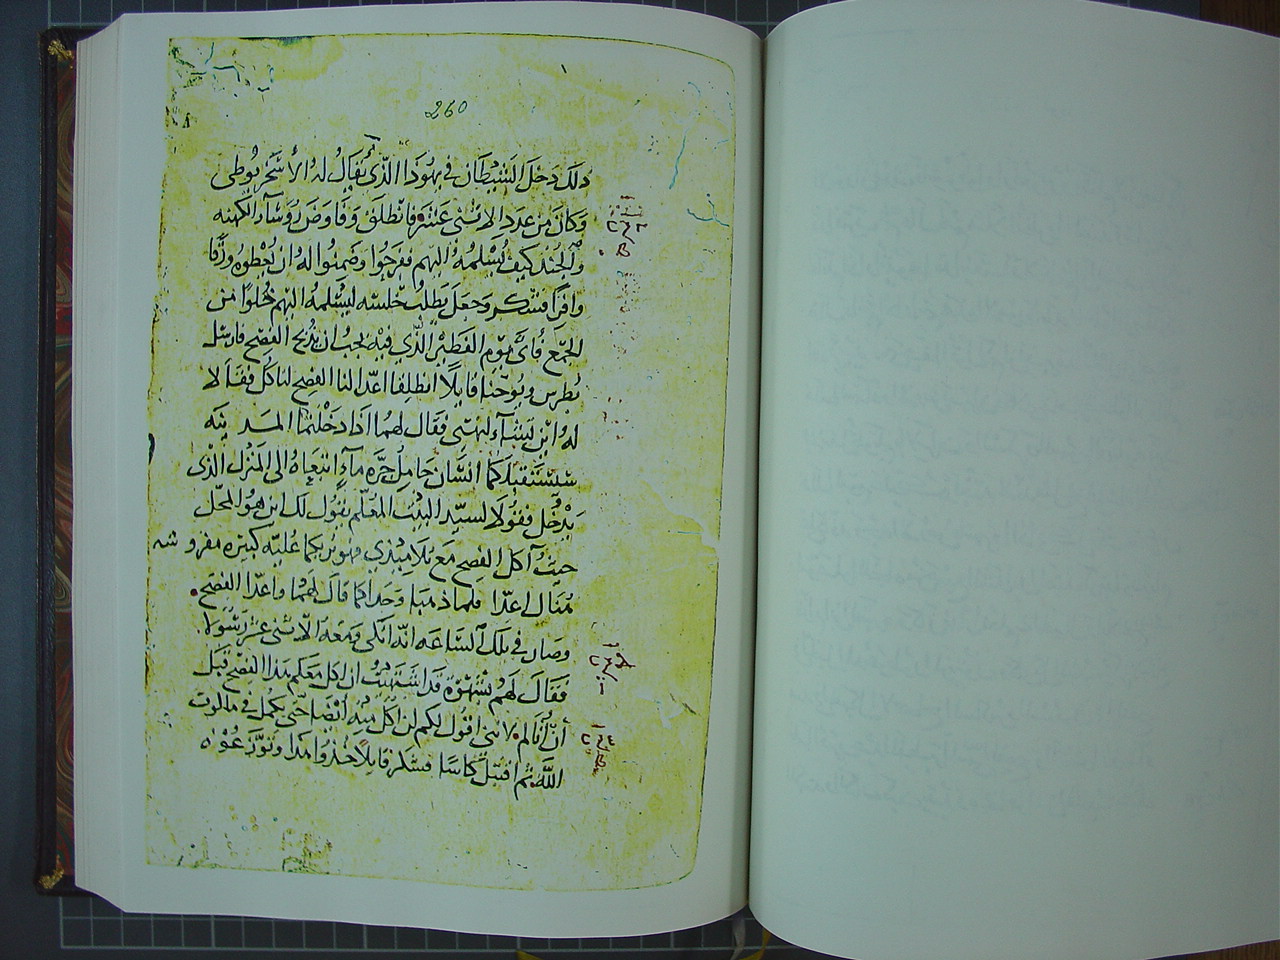 260
دلك دخل الشيطان في يهودا الذي يقال له الأسخريوطي
وكان من عدد الاثنى عشر فانطلق وفاوض رؤسآء الكهنه
والجند كيف يسلمه اليهم ففرحوا وضمنوا له ان يعطوه ورقا
وافرا فشكر وجعل يطلب خلسه ليسلمه اليهم خلوا من
الجمع فأتى يوم الفطير الذي فيه يجب ان يذبح الفصح فارسل
بطرس ويوحنا قايلا انطلقا اعدا لنا الفصح لناكل فقالا
له اين تشآء نهيى فقال لهما اذا دخلتما المدينه
سيستقبلكما انسان حامل جره مآء اتبعاه الى المنزل الذى
يدخل فقولا لسيد البيت المعلم يقول لك اين هو المحل
حيث آكل الفصح مع تلاميذي وهو يريكما عليه كبيره مفروشه
هنالك اعدا فلما ذهبا وجدا كما قال لهما واعدا الفصح
وصار في تلك الساعه اتكى ومعه الاثنى عشر رسولا
فقال لهم شهوة قد اشتهيت ان اكل معكم هذا الفصح قبل
أن أنالم لانني اقول لكم لن اكل منه أيضا حتى يكمل في ملكوت
الله ثم اقتبل كاسا فشكر قايلا خذوا هذا وتوزعوه